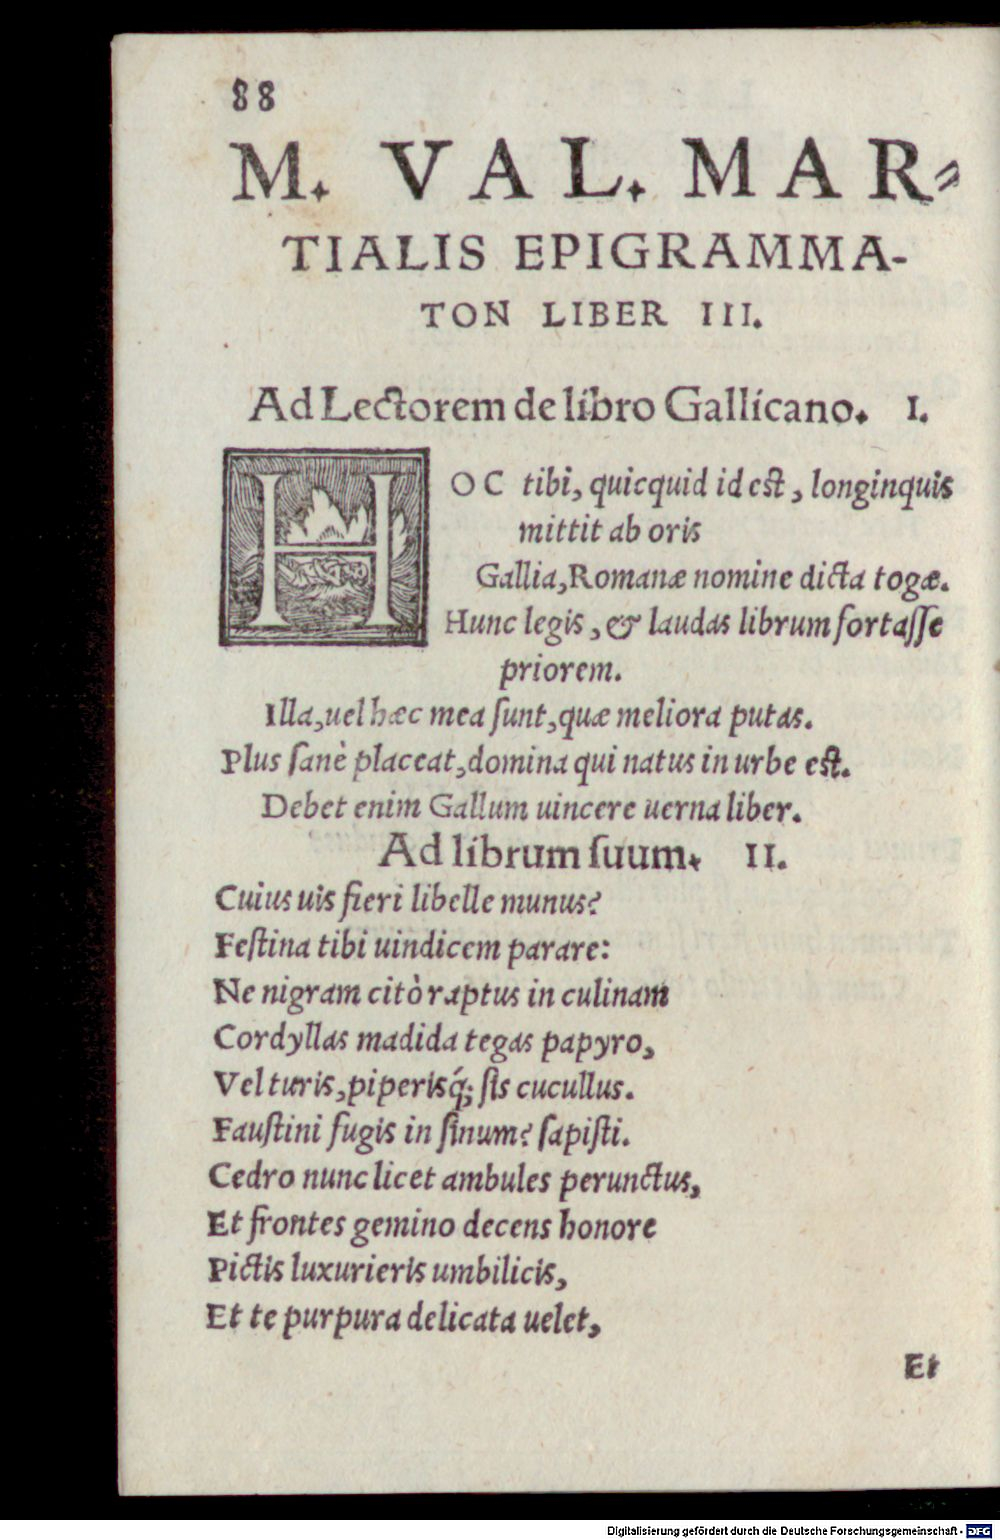 88
M. VAL. MAR-
TIALIS EPIGRAMMA-
TON LIBER III.
Ad Lectorem de libro Gallicano. I.
HOC tibi, quicquid id est, longinquis
mittit ab oris
Gallia, Romanæ nomine dicta togæ.
Hunc legis, & laudas librum fortaſſe
priorem.
Illa, uel hæc mea ſunt, quæ meliora putas.
Plus ſanè placeat, domina qui natus in urbe est.
Debet enim Gallum uincere uerna liber.
Ad librum ſuum. II.
Cuius uis fieri libelle munus?
Feſtina tibi uindicem parare:
Ne nigram citò raptus in culinam
Cordyllas madida tegas papyro,
Vel turis, piperisq́; ſis cucullus.
Fauſtini fugis in ſinum? ſapiſti.
Cedro nunc licet ambules perunctus,
Et frontes gemino decens honore
Pictis luxurieris umbilicis,
Et te purpura delicata uelet,
Et
Digitalisierung gefördert durch die Deutsche Forschungsgemeinschaft - DFG